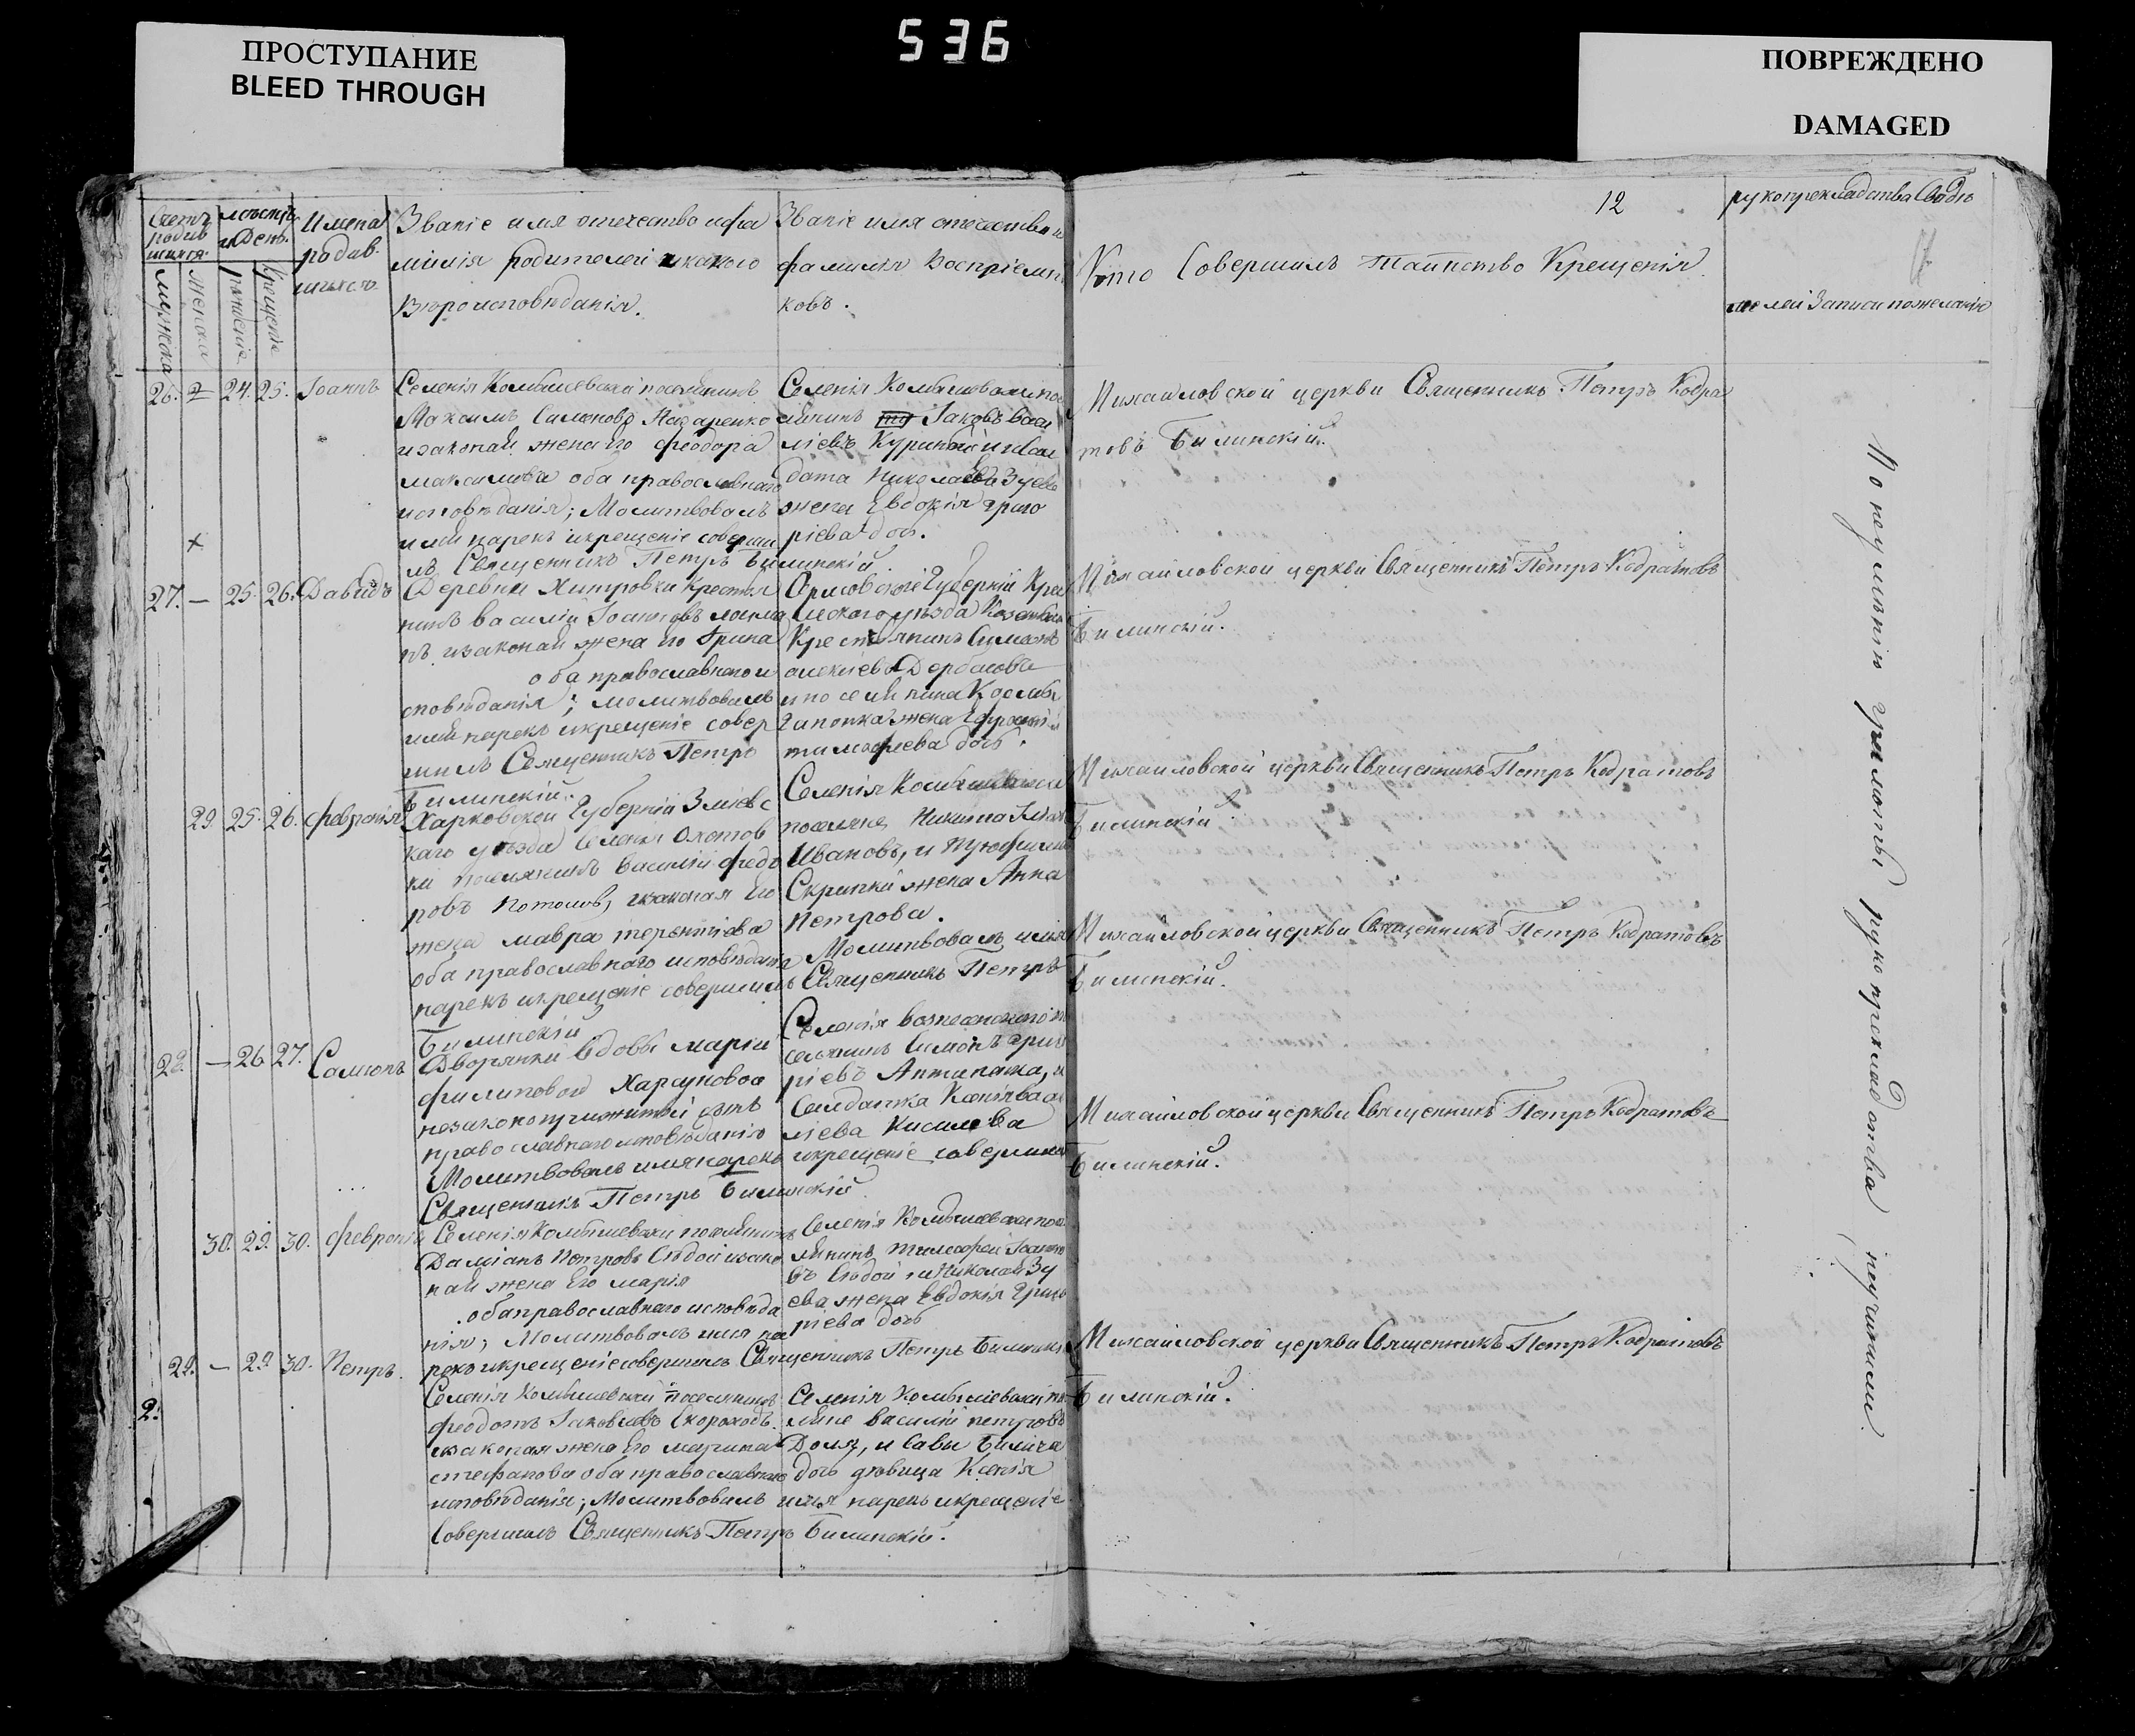 ПРОСТУПАНИЕ
BLEED THROUGH
536
ПОВРЕЖДЕНО
DAMAGED
Счетъ родив шихся.
мѣсяцъ и День.
Имена родив шихся
Званіе имя отечество и фа
милія родителей и какого
вѣроисповѣданія.
Званіе имя отечество и
фамилія Воспріемни
ковъ.
12
Кто Совершилъ Таинство Крещенія.
рукоприкладство Свидѣ
телей Записи по желанію
Мужска
Женска
Рожденіе
Крещеніе
26. 24. 25. Іоаннъ
Селенія Комышевахи поселянинъ
Максимъ Симоновъ Назаренко
и законая жена его Феодора
максимова оба православнаго
исповѣданія; Молитвовалъ
имя нарекъ и крещеніе соверши
лъ Священникъ Петръ Билинскій.
Селенія Комышевахи по
селянинъ Іаковъ Васи
ліевъ
дата Николая Зуева
жена Евдокія Григо
ріева дочь.
Михайловской церкви Священникъ Петръ Кодра
товъ Билинскій.
27. — 25. 26. Давидъ
Деревни Хитровки Крестья
нинъ василій Іоанновъ
и законая жена его Ирина
оба православнаго и
сповѣданія; молитвовалъ
имя нарекъ и крещеніе совер
шилъ Священникъ Петръ
Билинскій.
Орловской Губерніи
уѣзда
Крестьянинъ Симеонъ
алексіевъ
и поселянина Космы
Гапонка жена
тимофеева дочь.
Михайловской церкви Священникъ Петръ Кодратовъ
Билинскій.
29. 25. 26. Февронія
Харковской Губерніи Зміевс
каго уѣзда Селенія Охотов
ки поселянинъ Василій Федо
ровъ Потомовъ, и законая Его
жена мавра терентіева
оба православнаго исповѣданія
нарекъ и крещеніе совершилъ Священникъ Петръ
Билинскій
Селенія Комышевахи
поселяне Никита
Ивановъ, и Трофима
Скрипки жена Анна
Петрова.
Молитвовалъ имя
Михайловской церкви Священникъ Петръ Кодратовъ
Билинскій.
28. — 26 27. Самсонъ
Дворянки Вдовы маріи
филиповой Харсуновой
незаконоприжитый сынъ
православнаго исповѣданія
Молитвовалъ имя нарекъ и крещеніе совершилъ
Священникъ Петръ Билинскій
Селенія вознесенского по
селянинъ Симонъ Григо
ріевъ Антипата, и
Солдатка Ксенія Васи
ліева Киселева
Михайловской церкви Священникъ Петръ Кодратовъ
Билинскій.
30. 29. 30. Февронія
Селенія Комышевахи поселянинъ
Даміанъ Петровъ Сѣдой и зако
ная жена Его марія
оба православнаго исповѣда
нія; Молитвовалъ имя на
рекъ и крещеніе совершилъ Священникъ Петръ Билинскі
Селенія Комышевахи посе
лянинъ тимофей Іоанно
въ Сѣдой, и Николая Зу
ева жена Евдокія Григо
ріева дочь
Михайловской церкви Священникъ Петръ Кодратовъ
Билинскій.
29. — 29 30. Петръ.
Селенія Комышевахи поселянинъ
Феодотъ Іаковлевъ Скороходъ.
и законая жена Его марина
стефанова оба православнаго
исповѣданія; Молитвовалъ имя нарекъ и крещеніе
Совершилъ Священникъ Петръ Билинскій.
Селенія Комышевахи посе
ляне василій петровъ
Доля, и Савы Билича
дочь дѣвица Ксенія
Михайловской церкви Священникъ Петръ Кодратовъ
Билинскій.
По неумѣнію грамоты рукоприкладства неучинили.